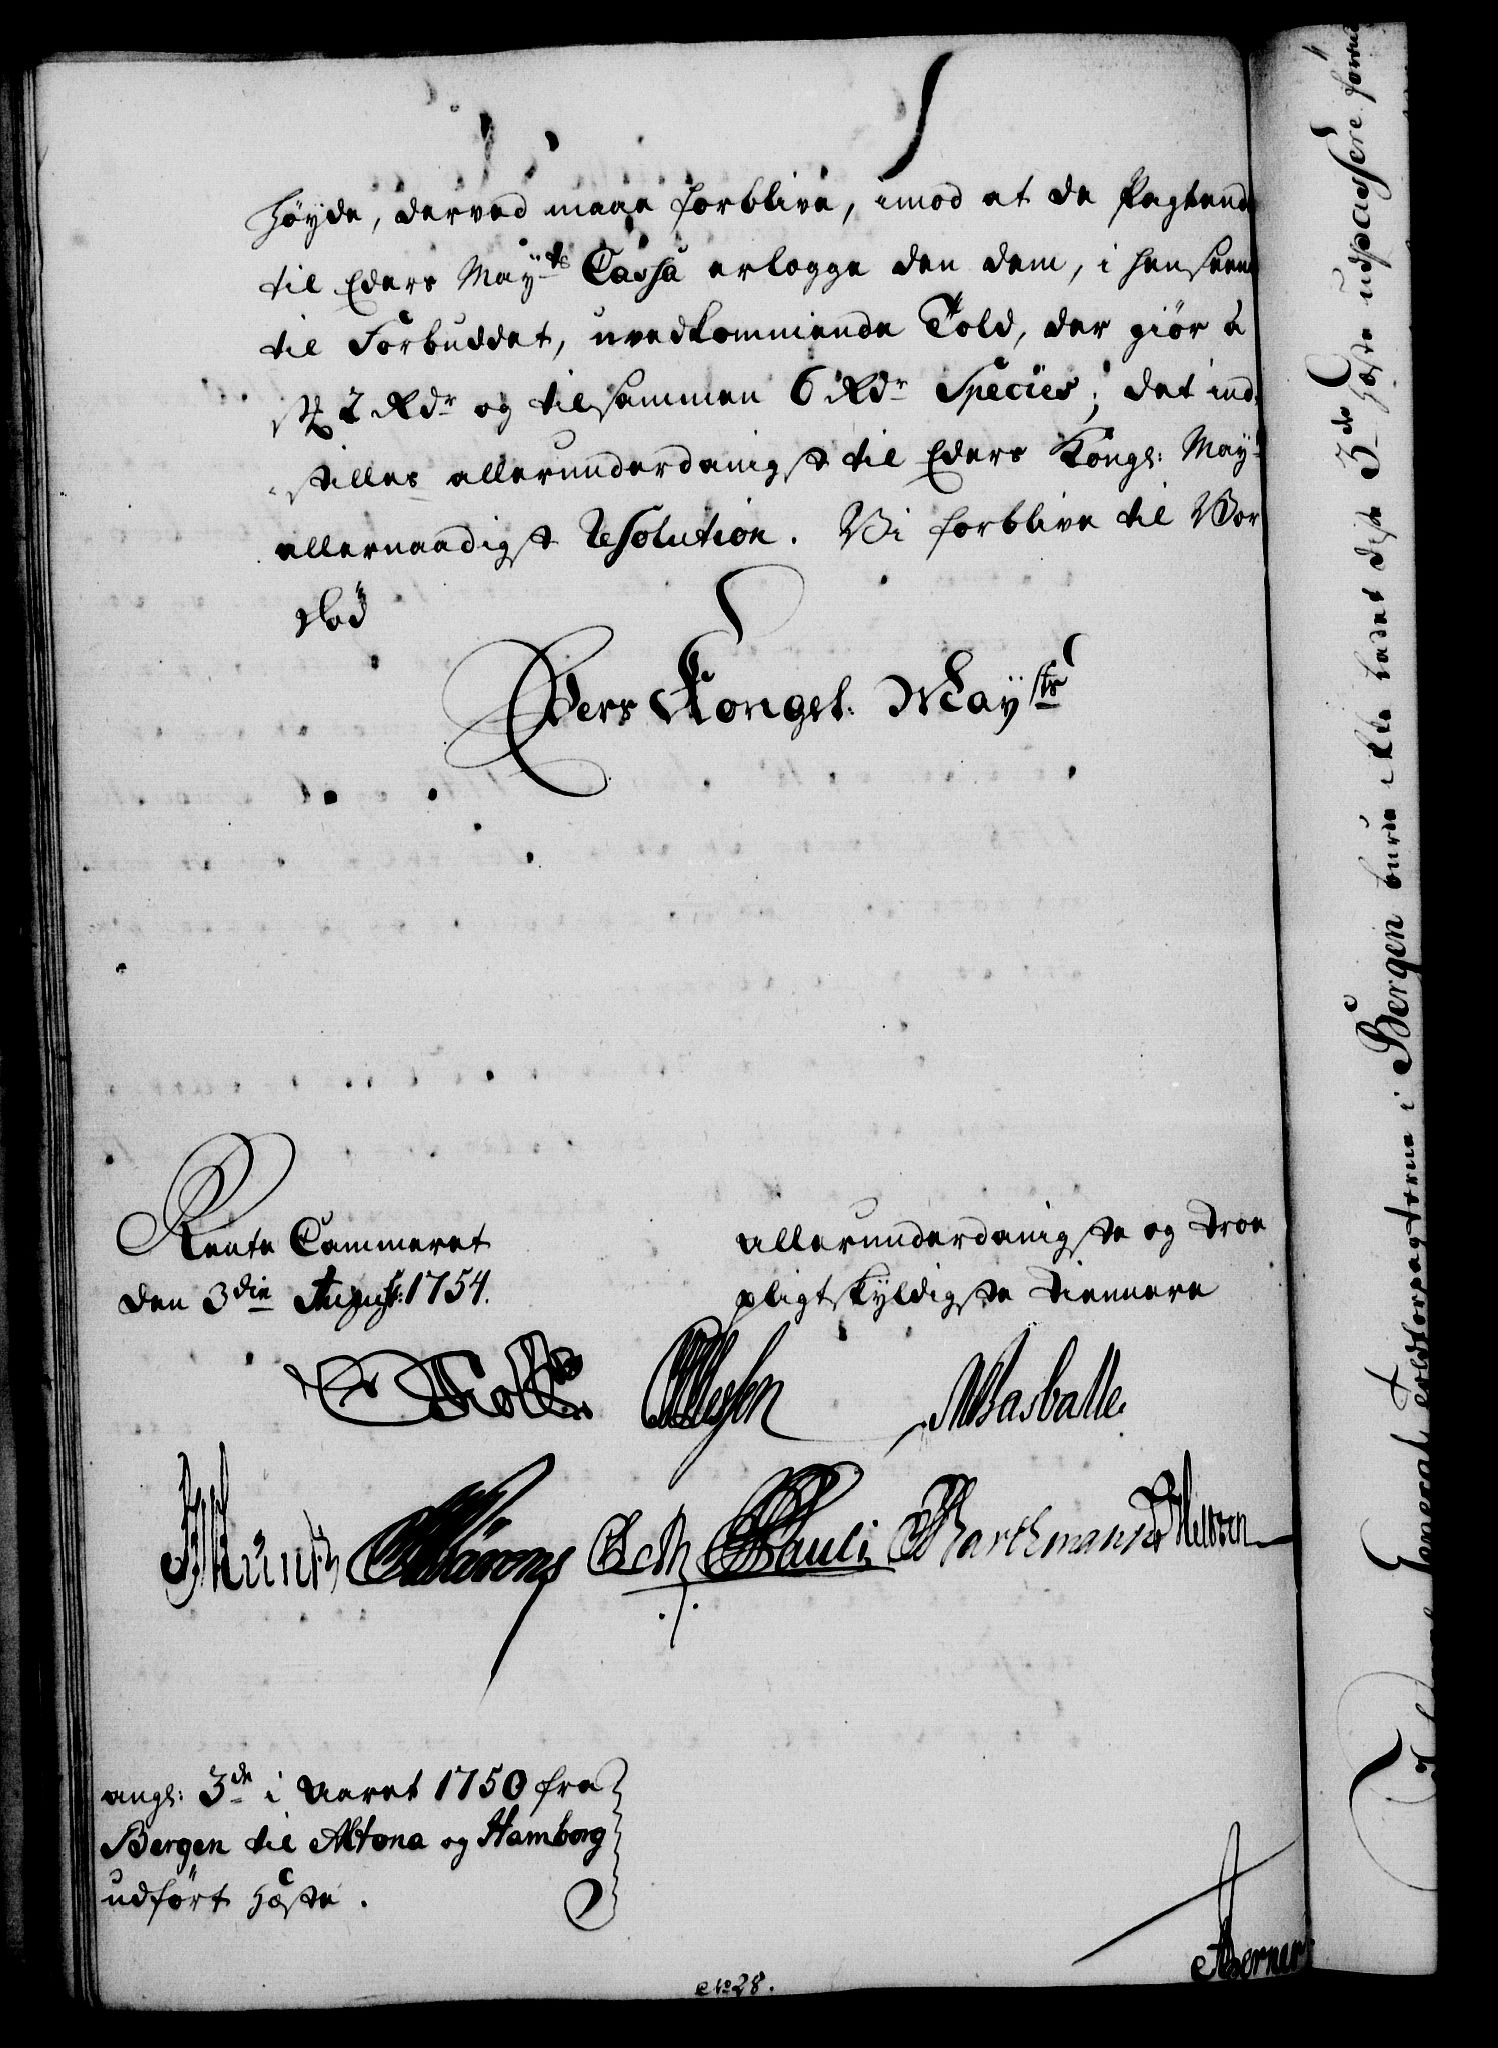 høyde, derved maae forblive, imod at de Pagtend
til Eders May.ts Cassa erlegge den dem, i henseend
til Forbuddet, uvedkommende Told, der giør a
st 2 Rdr og tilsammen 6 Rdr Species; det ind-
stilles allerunderdanigst til Eders Kongl: May.
allernaadigst Resolution. Vi forblive til Vor
Død
Eders Kongel. Mayts
Rente Cammeret
den 3die August: 1754.
allerunderdanigste og troe
pligtskyldigste tiennere
Holst
Massballe
Münch
Pauli
Barthmann
angl: 3de i Aaret 1750 fra
Bergen til Altona og Hamborg
udført Hæste.
Berner
No 28.
General Toldforpagterne i Bergen burde ikke ladet disse 3de Hæste udpassere